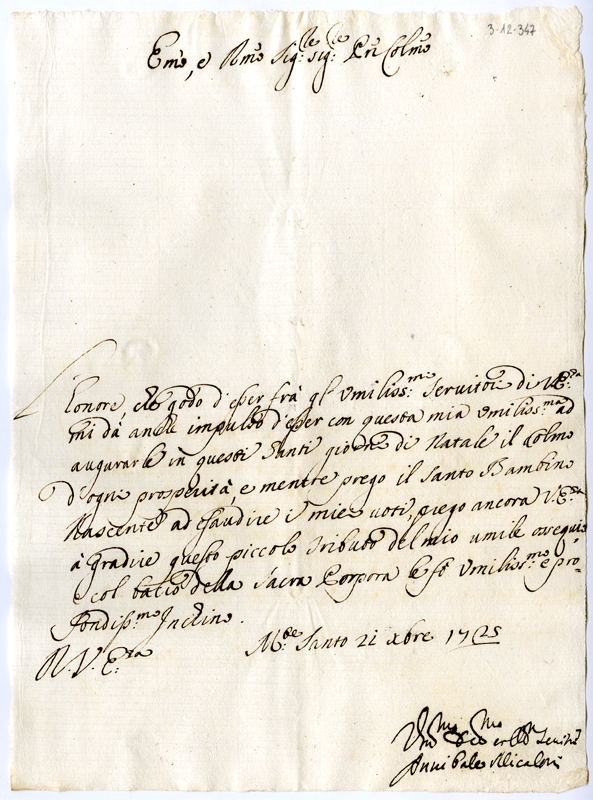 3-12-347
Emo, e Rmo Sig:re Sig:re Pñ Colmo
L'onore, che godo d'esser frà gl'Umiliss:mi Servitori di V.E:za
mi dà anche impulso d'esser con questa mia umiliss:ma ad
augurarle in questi Santi giorni di Natale il Colmo
d'ogni prosperità, e mentre prego il Santo Bambino
Nascente ad esaudire i miei voti, prego ancora V.E:za
à gradire questo piccolo tributo del mio umile ossequio,
e col bacio della Sacra Porpora le fò Umiliss:mo e pro-
fondiss:mo Inchino.
M:te Santo 21 xbre 1725
D. V. E:za
Um:mo Servitore
Annibale